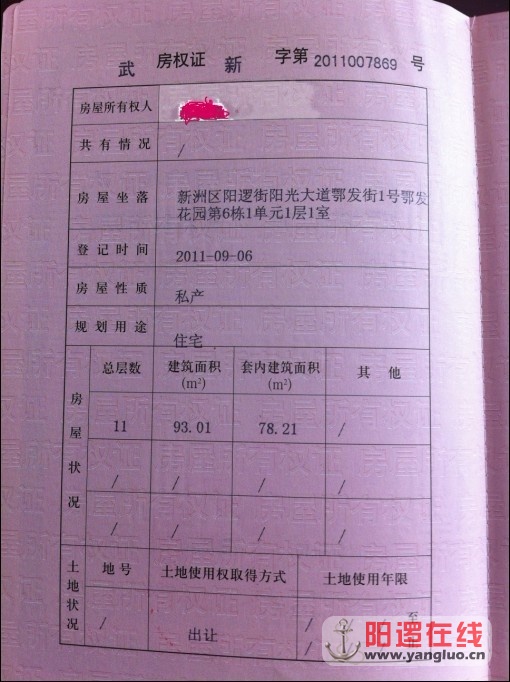 武 房权证 新 字第 2011007869 号
房屋所有权人
共有情况 /
房屋坐落 新洲区阳逻街阳光大道鄂发街1号鄂发
花园第6栋1单元1层1室
登记时间 2011-09-06
房屋性质 私产
规划用途 住宅
房屋状况 总层数 建筑面积(m²) 套内建筑面积(m²) 其他
11 93.01 78.21 /
/ / / /
/ / / /
土地状况 地号 土地使用权取得方式 土地使用年限
/ 出让 / / 至
/
阳逻在线
www.yangluo.cn